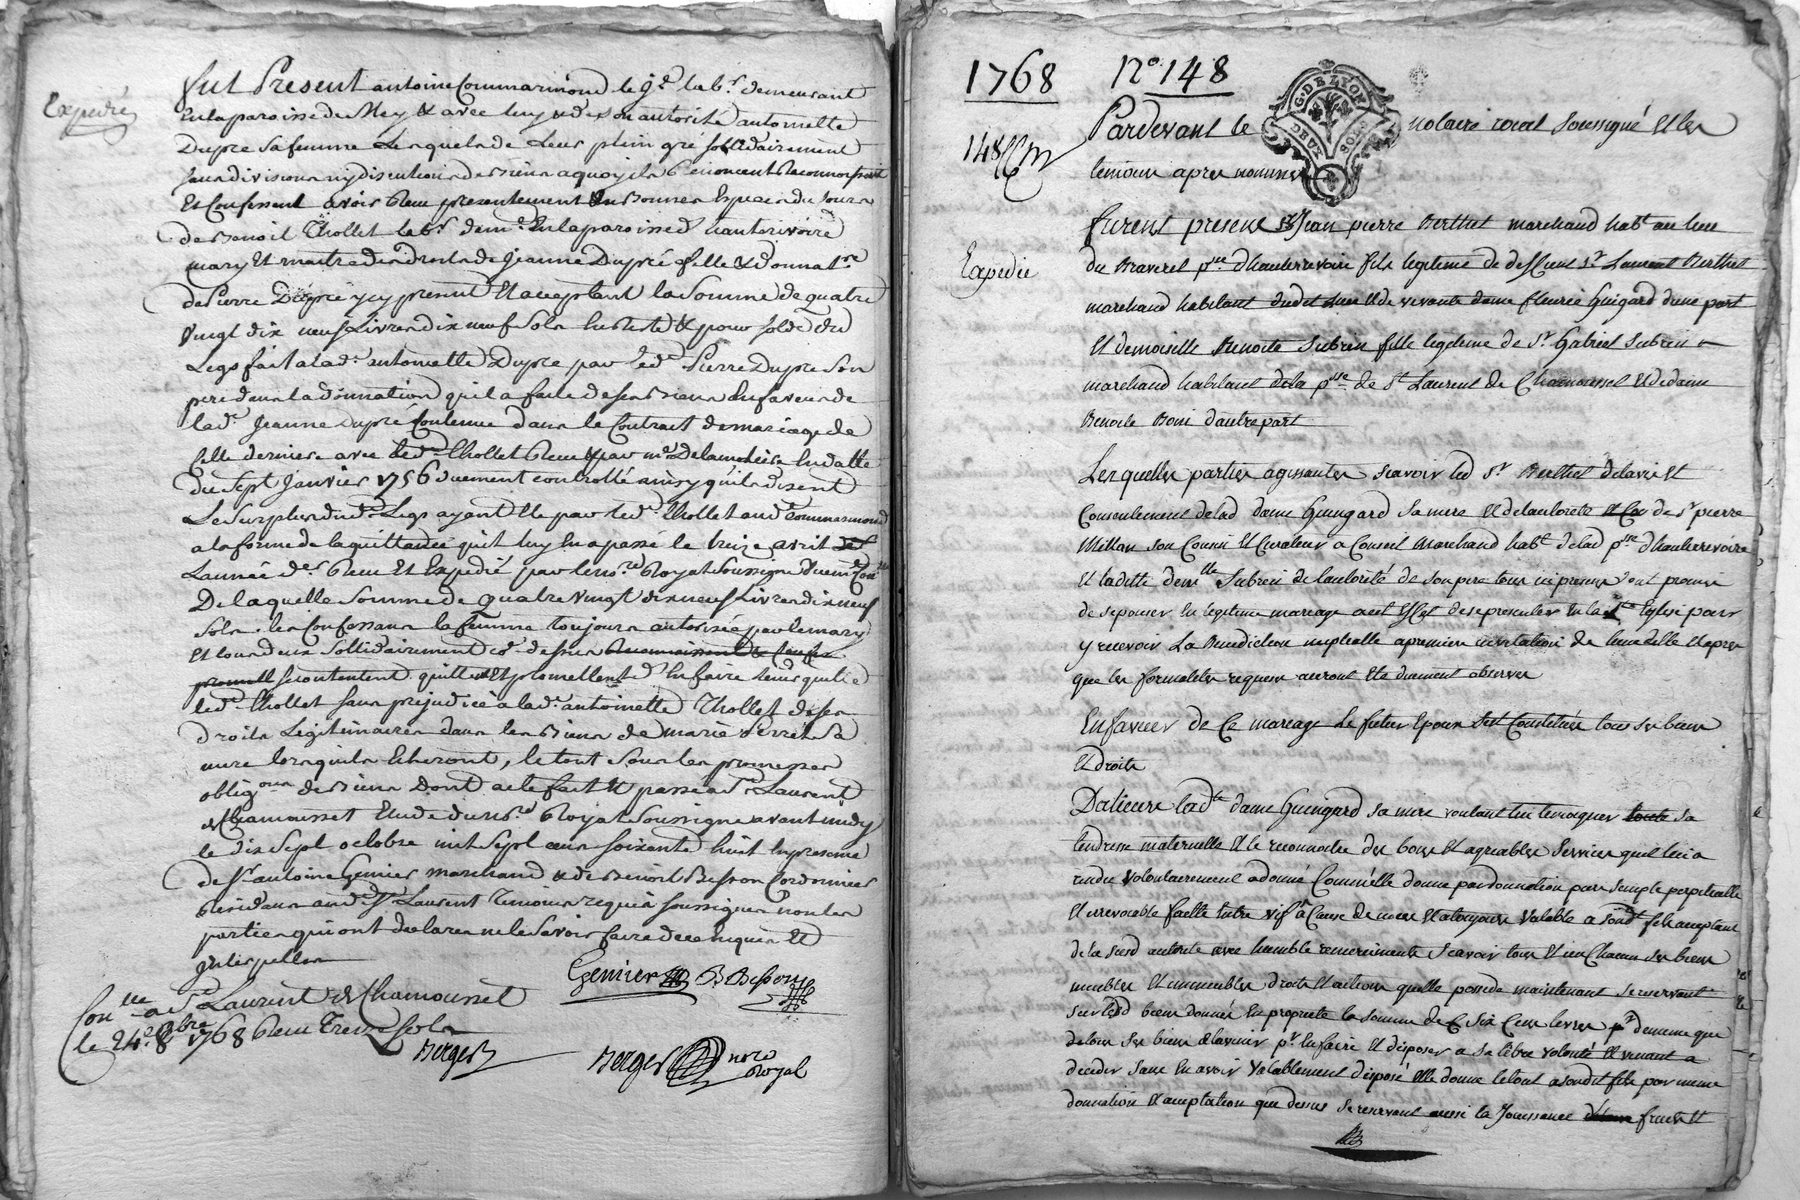 Expedié
fut Present antoine Commarmond le j.e lab.r demeurant
En la paroisse de Meys & avec luy & de son autorité antoinette
Dupre sa femme Lesquels de Leur plein gré sollidairement
sans division ny discution de biens a quoy ils renoncent Reconnoissent
Et Confessent avoir Reçu presentement En bonnes Especes du jour
de Benoit Thollet lab.r dem.t En la paroisse d hauterivoire
mary Et maitre des droits de Jeanne Dupré fille & donnat.re
de Pierre Dupré icy present Et acceptant la Somme de quatre
vingt dix neuf Livres dix neuf Sols En reste & pour solde du
Legs fait a lad.e antoinette Dupre par led. Pierre Dupre Son
pere dans la donnation qu'il a faite de ses Biens En faveur de
lad.e Jeanne Dupré Contenue dans le Contrat de mariage de
Cette derniere avec led. Thollet Reçu par m.e Delamotiere En datte
du Sept Janvier 1756 duement controllé ainsy qu'ils disent
Le Surplus dud. Legs ayant Eté payé par led. Thollet aud. Commarmond
a la forme de la quittance qu'il luy En a passé le treize avril
L'année d.re Reçu Et Expedié par le no.re Royal Soussigné duem.t Con.llé
De laquelle Somme de quatre vingt dix neuf Livres dix neuf
Sols les Confessans la femme toujours autorisée par le mary
Et tous deux Sollidairement co.e dessus
se contentent quittent Et promettent d'En faire tenir quitte
led. Thollet sans prejudice a lad.e antoinette Thollet de ses
droits Legitimaires dans les Biens de marie Perret Sa
mere lorsqu'ils Echeront, le tout Sous les promesses
oblig.ons de Biens Dont acte fait Et passé a S.t Laurent
de Chamousset Etude du no.re Royal Soussigné avant midy
le dix Sept octobre mil Sept cens soixante huit En presence
de S.r antoine Genier marchand & de Benoit Besson Cordonnier
Residens aud. S.t Laurent Temoins requis soussignés non les
parties qui ont declarés ne le Savoir faire de ce Enquis Et
Interpellés
Genier B Besson
Con.llé a S.t Laurent de Chamousset
le 24.e 8bre 1768 Reçu Treize Sols
Berger
Berger no.re Royal
1768 N.o 148
148
G. DE LYON
DEUX SOLS
Pardevant le notaire roial soussigné Et les
temoins apres nommés
Expedie
furent presens S.r Jean pierre Berthet marchand hab.t au lieu
du Braveret p.sse d'hauterrivoire fils legitime de deffunt S.r Laurent Berthet
marchand habitant dudit lieu Et de vivante dame fleurie Guigard d'une part
Et demoiselle Benoite Subrin fille legitime de S.r Gabriel Subrin
marchand habitant de la p.sse de S.t Laurent de Chamousset Et de dame
Benoite Boni d'autre part
Lesquelles parties agissantes scavoir led S.r Berthet de l'avis Et
Consentement de lad dame Guingard sa mere Et de l'autorité de S.r pierre
Millan son Cousin Et Curateur a Conseil marchand hab.t de lad p.sse d'hauterrevoire
Et laditte dem.lle Subrin de l'autorité de son pere tous ici presens ont promis
de s'epouser En legitime mariage a cet Effet de se presenter En la S.te Eglise pour
y recevoir La Benediction nuptialle a premiere invitation de l'un d'elle Et apres
que les formalités requises auront Eté duement observées
En faveur de Ce mariage Le futur Epoux S'est Constitué tous ses biens
Et droits
D'alieurs lad.te dame Guingard sa mere voulant lui temoigner sa
tendresse maternelle Et le reconnoitre des bons Et agreables Services qu'il lui a
rendu volontairement a donné Comm'elle donne par donnation pure simple perpetuelle
Et irrevocable faitte Entre vifs a Cause de noces Et a toujours valable a sond.t fils acceptant
de la susd autorité avec humble remerciments scavoir tous Et un Chacun ses biens
meubles Et immeubles droits Et actions qu'elle possede maintenant se reservant
sur lesd biens donnés En propriété la somme de six Cens livres p.r de meme que
de tous ses biens a l'avenir p.r En faire Et disposer a sa libre volonté Et venant a
deceder sans En avoir valablement disposé Elle donne le tout a sondit fils par meme
donnation Et acceptation que dessus se reservant aussi la Jouissance fruits Et